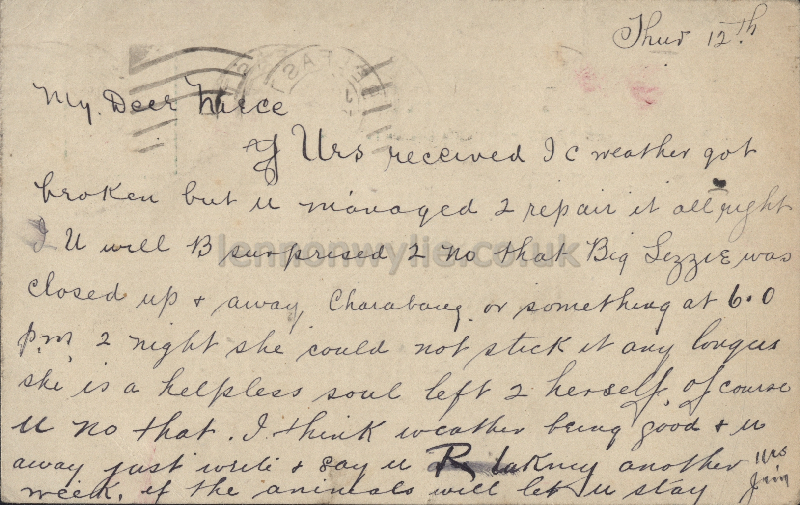 Thur 12th
My Deer Niece
Urs received I c weather got
broken but u managed 2 repair it all right
I U will B surprised 2 no that Big Lizzie was
closed up + away Charabang or something at 6.0
p.m. 2 night she could not stick it any longer
she is a helpless soul left 2 herself, of course
u no that. I think weather being good + u
away just write + say u R taking another
week, if the animals will let u stay
Urs
Jim
lennonwylie.co.uk